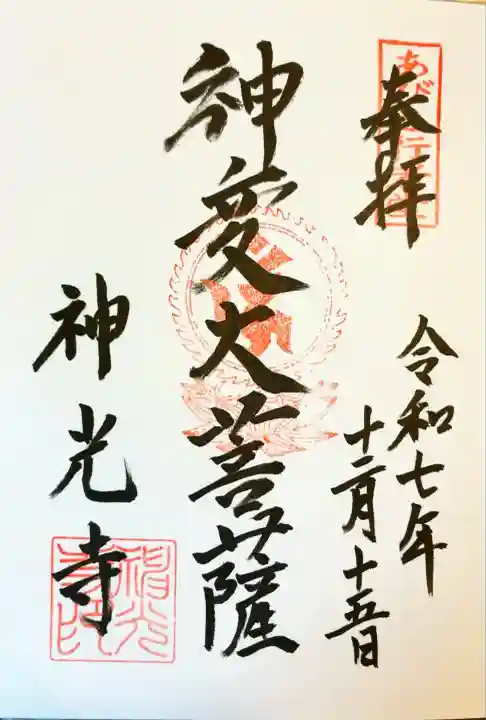 奉拝
令和七年
十二月十五日
神変大菩薩
神光寺
神光寺印